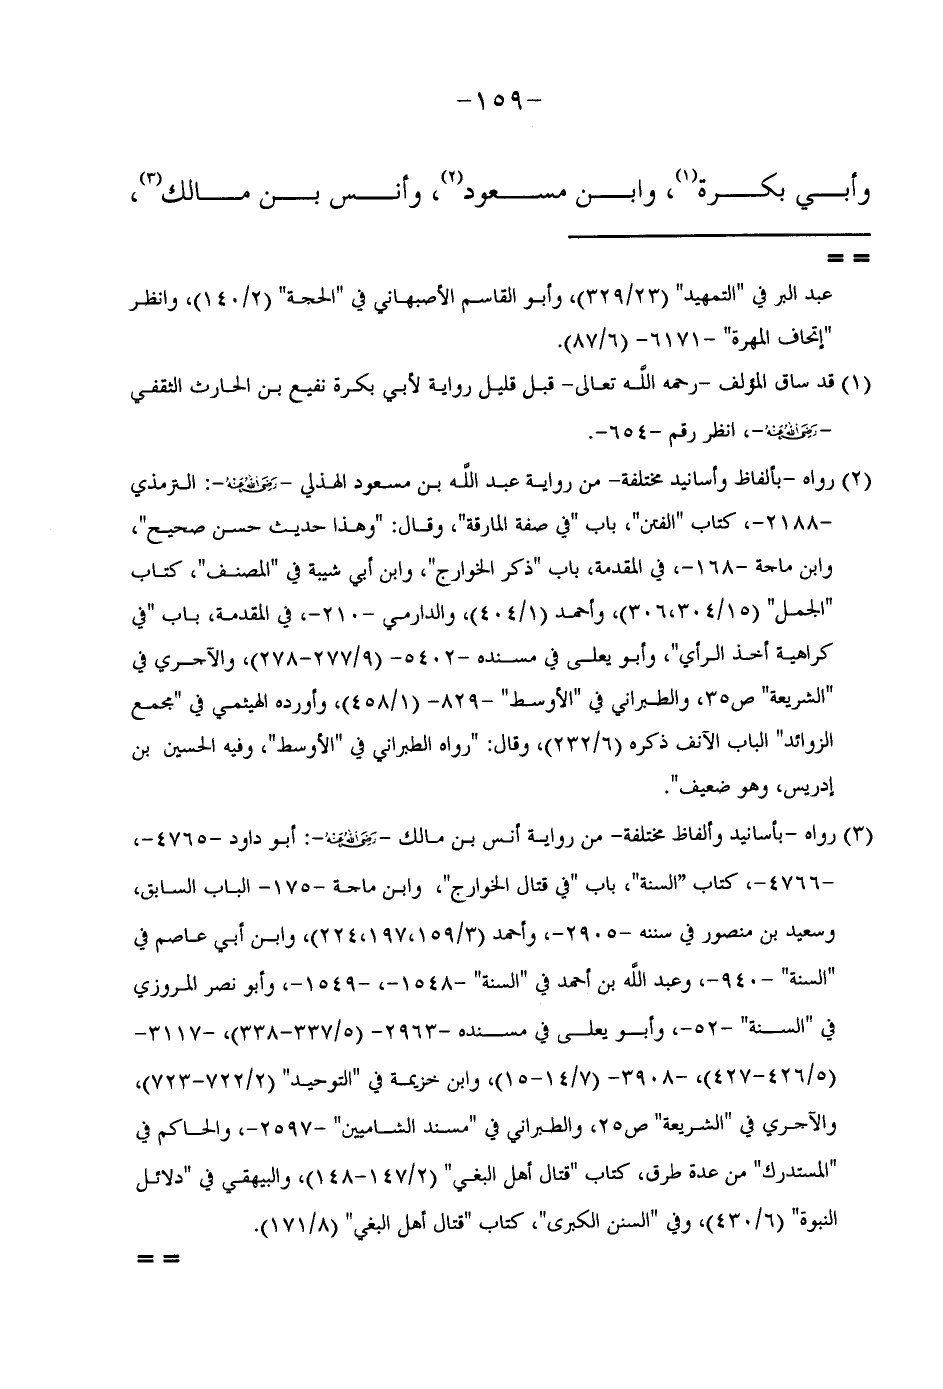 -١٥٩-
وأبــي بكــــرة(١)، وابــن مســعود(٢)، وأنــس بــن مــالك(٣)،
= =
عبد البر في "التمهيد" (٣٢٩/٢٣)، وأبو القاسم الأصبهاني في "الحجة" (١٤٠/٢)، وانظر
"إتحاف المهرة" -٦١٧١- (٨٧/٦).
(١) قد ساق المؤلف -رحمه اللَّه تعالى- قبل قليل رواية لأبي بكرة نفيع بن الحارث الثقفي
-رَضِيَ اللهُ عَنْهُ-، انظر رقم -٦٥٤-.
(٢) رواه -بألفاظ وأسانيد مختلفة- من رواية عبد اللَّه بن مسعود الهذلي -رَضِيَ اللهُ عَنْهُ-: الترمذي
-٢١٨٨-، كتاب "الفتن"، باب "في صفة المارقة"، وقال: "وهذا حديث حسن صحيح"،
وابن ماجة -١٦٨-، في المقدمة، باب "ذكر الخوارج"، وابن أبي شيبة في "المصنف"، كتاب
"الجمل" (٣٠٦،٣٠٤/١٥)، وأحمد (٤٠٤/١)، والدارمي -٢١٠-، في المقدمة، باب "في
كراهية أخذ الرأي"، وأبو يعلى في مسنده -٥٤٠٢- (٢٧٧/٩-٢٧٨)، والآجري في
"الشريعة" ص٣٥، والطبراني في "الأوسط" -٨٢٩- (٤٥٨/١)، وأورده الهيثمي في "مجمع
الزوائد" الباب الآنف ذكره (٢٣٢/٦)، وقال: "رواه الطبراني في "الأوسط"، وفيه الحسين بن
إدريس، وهو ضعيف".
(٣) رواه -بأسانيد وألفاظ مختلفة- من رواية أنس بن مالك -رَضِيَ اللهُ عَنْهُ-: أبو داود -٤٧٦٥-،
-٤٧٦٦-، كتاب "السنة"، باب "في قتال الخوارج"، وابن ماجة -١٧٥- الباب السابق،
وسعيد بن منصور في سننه -٢٩٠٥-، وأحمد (٢٢٤،١٩٧،١٥٩/٣)، وابن أبي عاصم في
"السنة" -٩٤٠-، وعبد اللَّه بن أحمد في "السنة" -١٥٤٨-، -١٥٤٩-، وأبو نصر المروزي
في "السنة" -٥٢-، وأبو يعلى في مسنده -٢٩٦٣- (٣٣٧/٥-٣٣٨)، -٣١١٧-
(٤٢٦/٥-٤٢٧)، -٣٩٠٨- (١٤/٧-١٥)، وابن خزيمة في "التوحيد" (٧٢٢/٢-٧٢٣)،
والآجري في "الشريعة" ص٢٥، والطبراني في "مسند الشاميين" -٢٥٩٧-، والحاكم في
"المستدرك" من عدة طرق، كتاب "قتال أهل البغي" (١٤٧/٢-١٤٨)، والبيهقي في "دلائل
النبوة" (٤٣٠/٦)، وفي "السنن الكبرى"، كتاب "قتال أهل البغي" (١٧١/٨).
= =